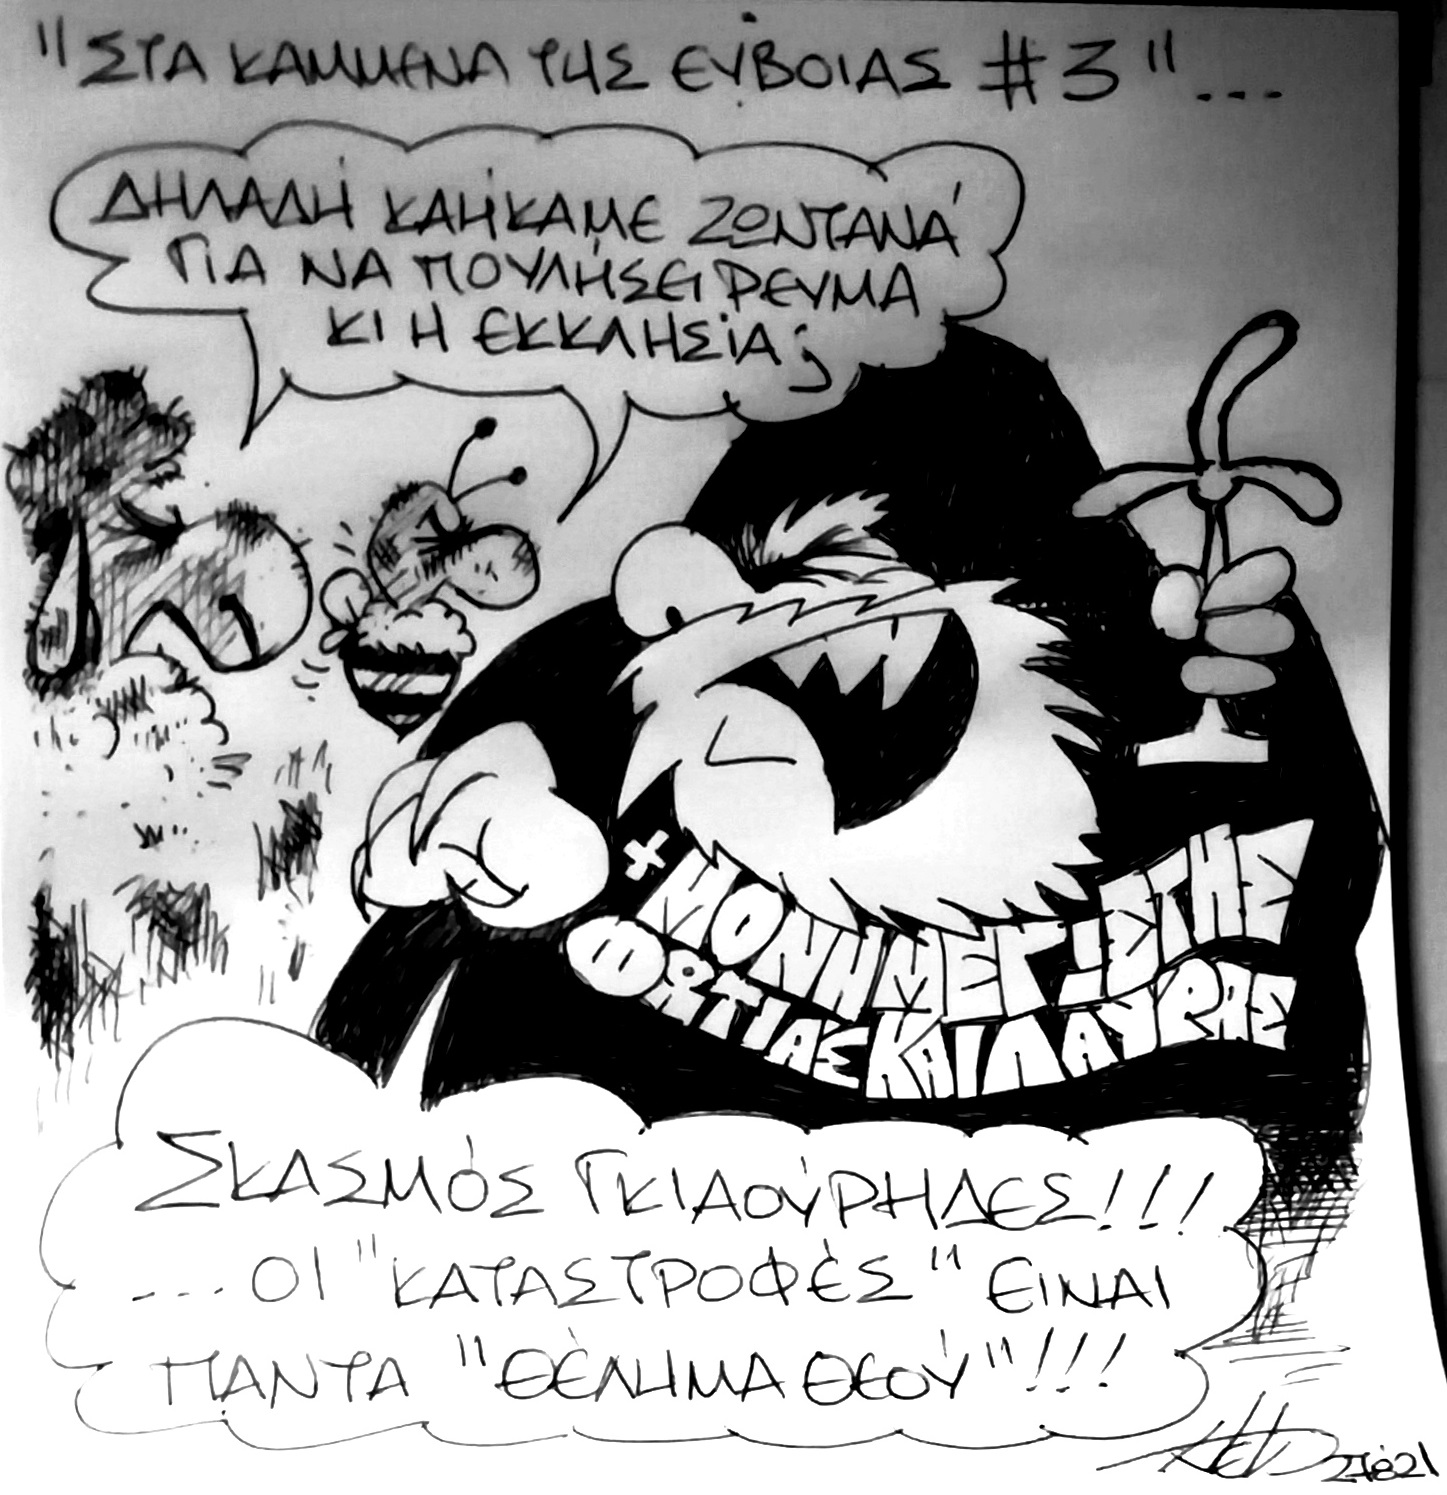 "ΣΤΑ ΚΑΜΜΕΝΑ ΤΗΣ ΕΥΒΟΙΑΣ #3"...
ΔΗΛΑΔΗ ΚΑΗΚΑΜΕ ΖΩΝΤΑΝΑ
ΓΙΑ ΝΑ ΠΟΥΛΗΣΕΙ ΡΕΥΜΑ
ΚΙ Η ΕΚΚΛΗΣΙΑ;
+ ΜΟΝΗ ΜΕΓΙΣΤΗΣ
ΦΩΤΙΑΣ ΚΑΙ ΛΑΥΡΑΣ
ΣΚΑΣΜΟΣ ΓΚΙΑΟΥΡΗΔΕΣ!!!
...ΟΙ "ΚΑΤΑΣΤΡΟΦΕΣ" ΕΙΝΑΙ
ΠΑΝΤΑ "ΘΕΛΗΜΑ ΘΕΟΥ"!!!
27821